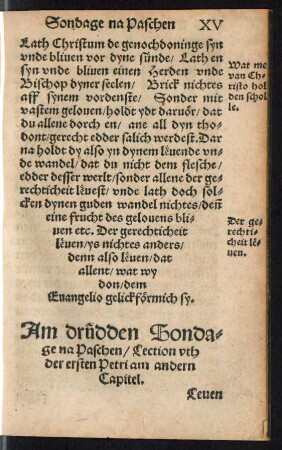 Sondage na Paschen XV
Lath Christum de genochdoninge syn
vnde bliuen vor dyne sünde/ Lath en
syn vnde bliuen einen Herden vnde
Bischop dyner seelen/ Brick nichtes
aff synem vordenste/ Sonder mit
vastem gelouen/ holdt ydt daruör/ dat
du allene dorch en/ ane all dyn tho-
dont/ gerecht edder salich werdest. Dar
na holdt dy also yn dynem leuende vn-
de wandel/ dat du nicht dem flesche/
edder desser werlt/ sonder allene der ge-
rechticheit leuest/ vnde lath doch sol-
cken dynen guden wandel nichtes/ deñ
eine frucht des gelouens bli-
uen etc. Der gerechticheit
leuen/ ys nichtes anders/
denn also leuen/ dat
allent/ wat wy
don/ dem
Euangelio gelickförmich sy.
Wat me
van Chr-
risto hol
den schol-
le.
Der ge-
rechti-
cheit le-
uen.
Am drüdden Sonda-
ge na Paschen/ Lection vth
der ersten Petri am andern
Capitel.
Leuen